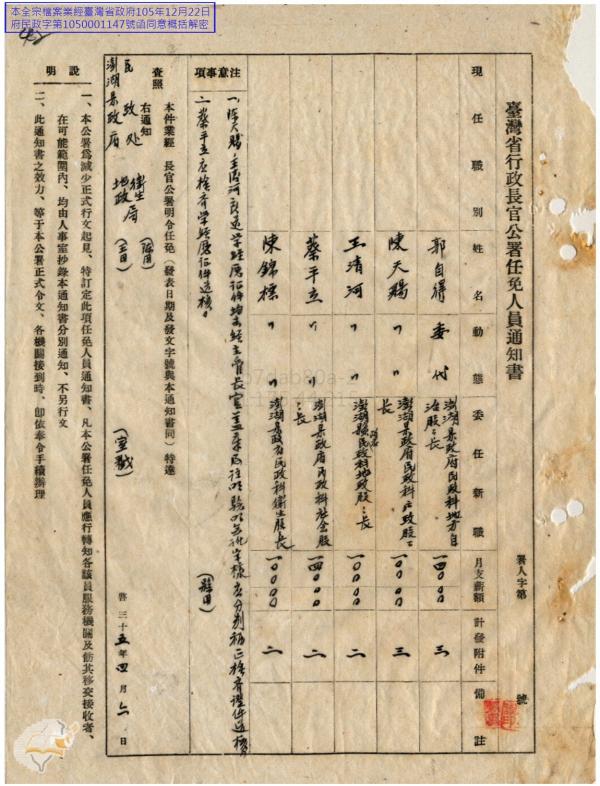 本全宗檔案業經臺灣省政府105年12月22日
府民政字第1050001147號函同意概括解密
臺灣省行政長官公署任免人員通知書
署人字第 號
現任職別 姓名 動態 委任新職 月支薪額 計發附件 備註
郭自得 委代 澎湖縣政府民政科地方自治股股長 一四〇〇〇 三
陳天賜 〃 〃 澎湖縣政府民政科戶政股股長 一〇〇〇〇 三
王清河 〃 〃 澎湖縣政府民政科地政股股長 一〇〇〇〇 二
蔡平立 〃 〃 澎湖縣政府民政科社会股股長 一四〇〇〇 二
陳錦標 〃 〃 澎湖縣政府民政科衛生股股長 一〇〇〇〇 二
注意事項
二、蔡平立应檢齊学經歷证件送核
本件業經 長官公署明令任免(發表日期及發文字號與本通知書同)特達
查照
右通知
民政处
衛生局
地政局
澎湖县政府
啓 三十五年四月 日
說明
一、本公署爲減少正式行文起見、特訂定此項任免人員通知書、凡本公署任免人員應行轉知各該員服務機關及飭其移交接收者、
在可能範圍內、均由人事室抄錄本通知書分別通知、不另行文
二、此通知書之效力、等于本公署正式令文、各機關接到時、卽依奉令手續辦理